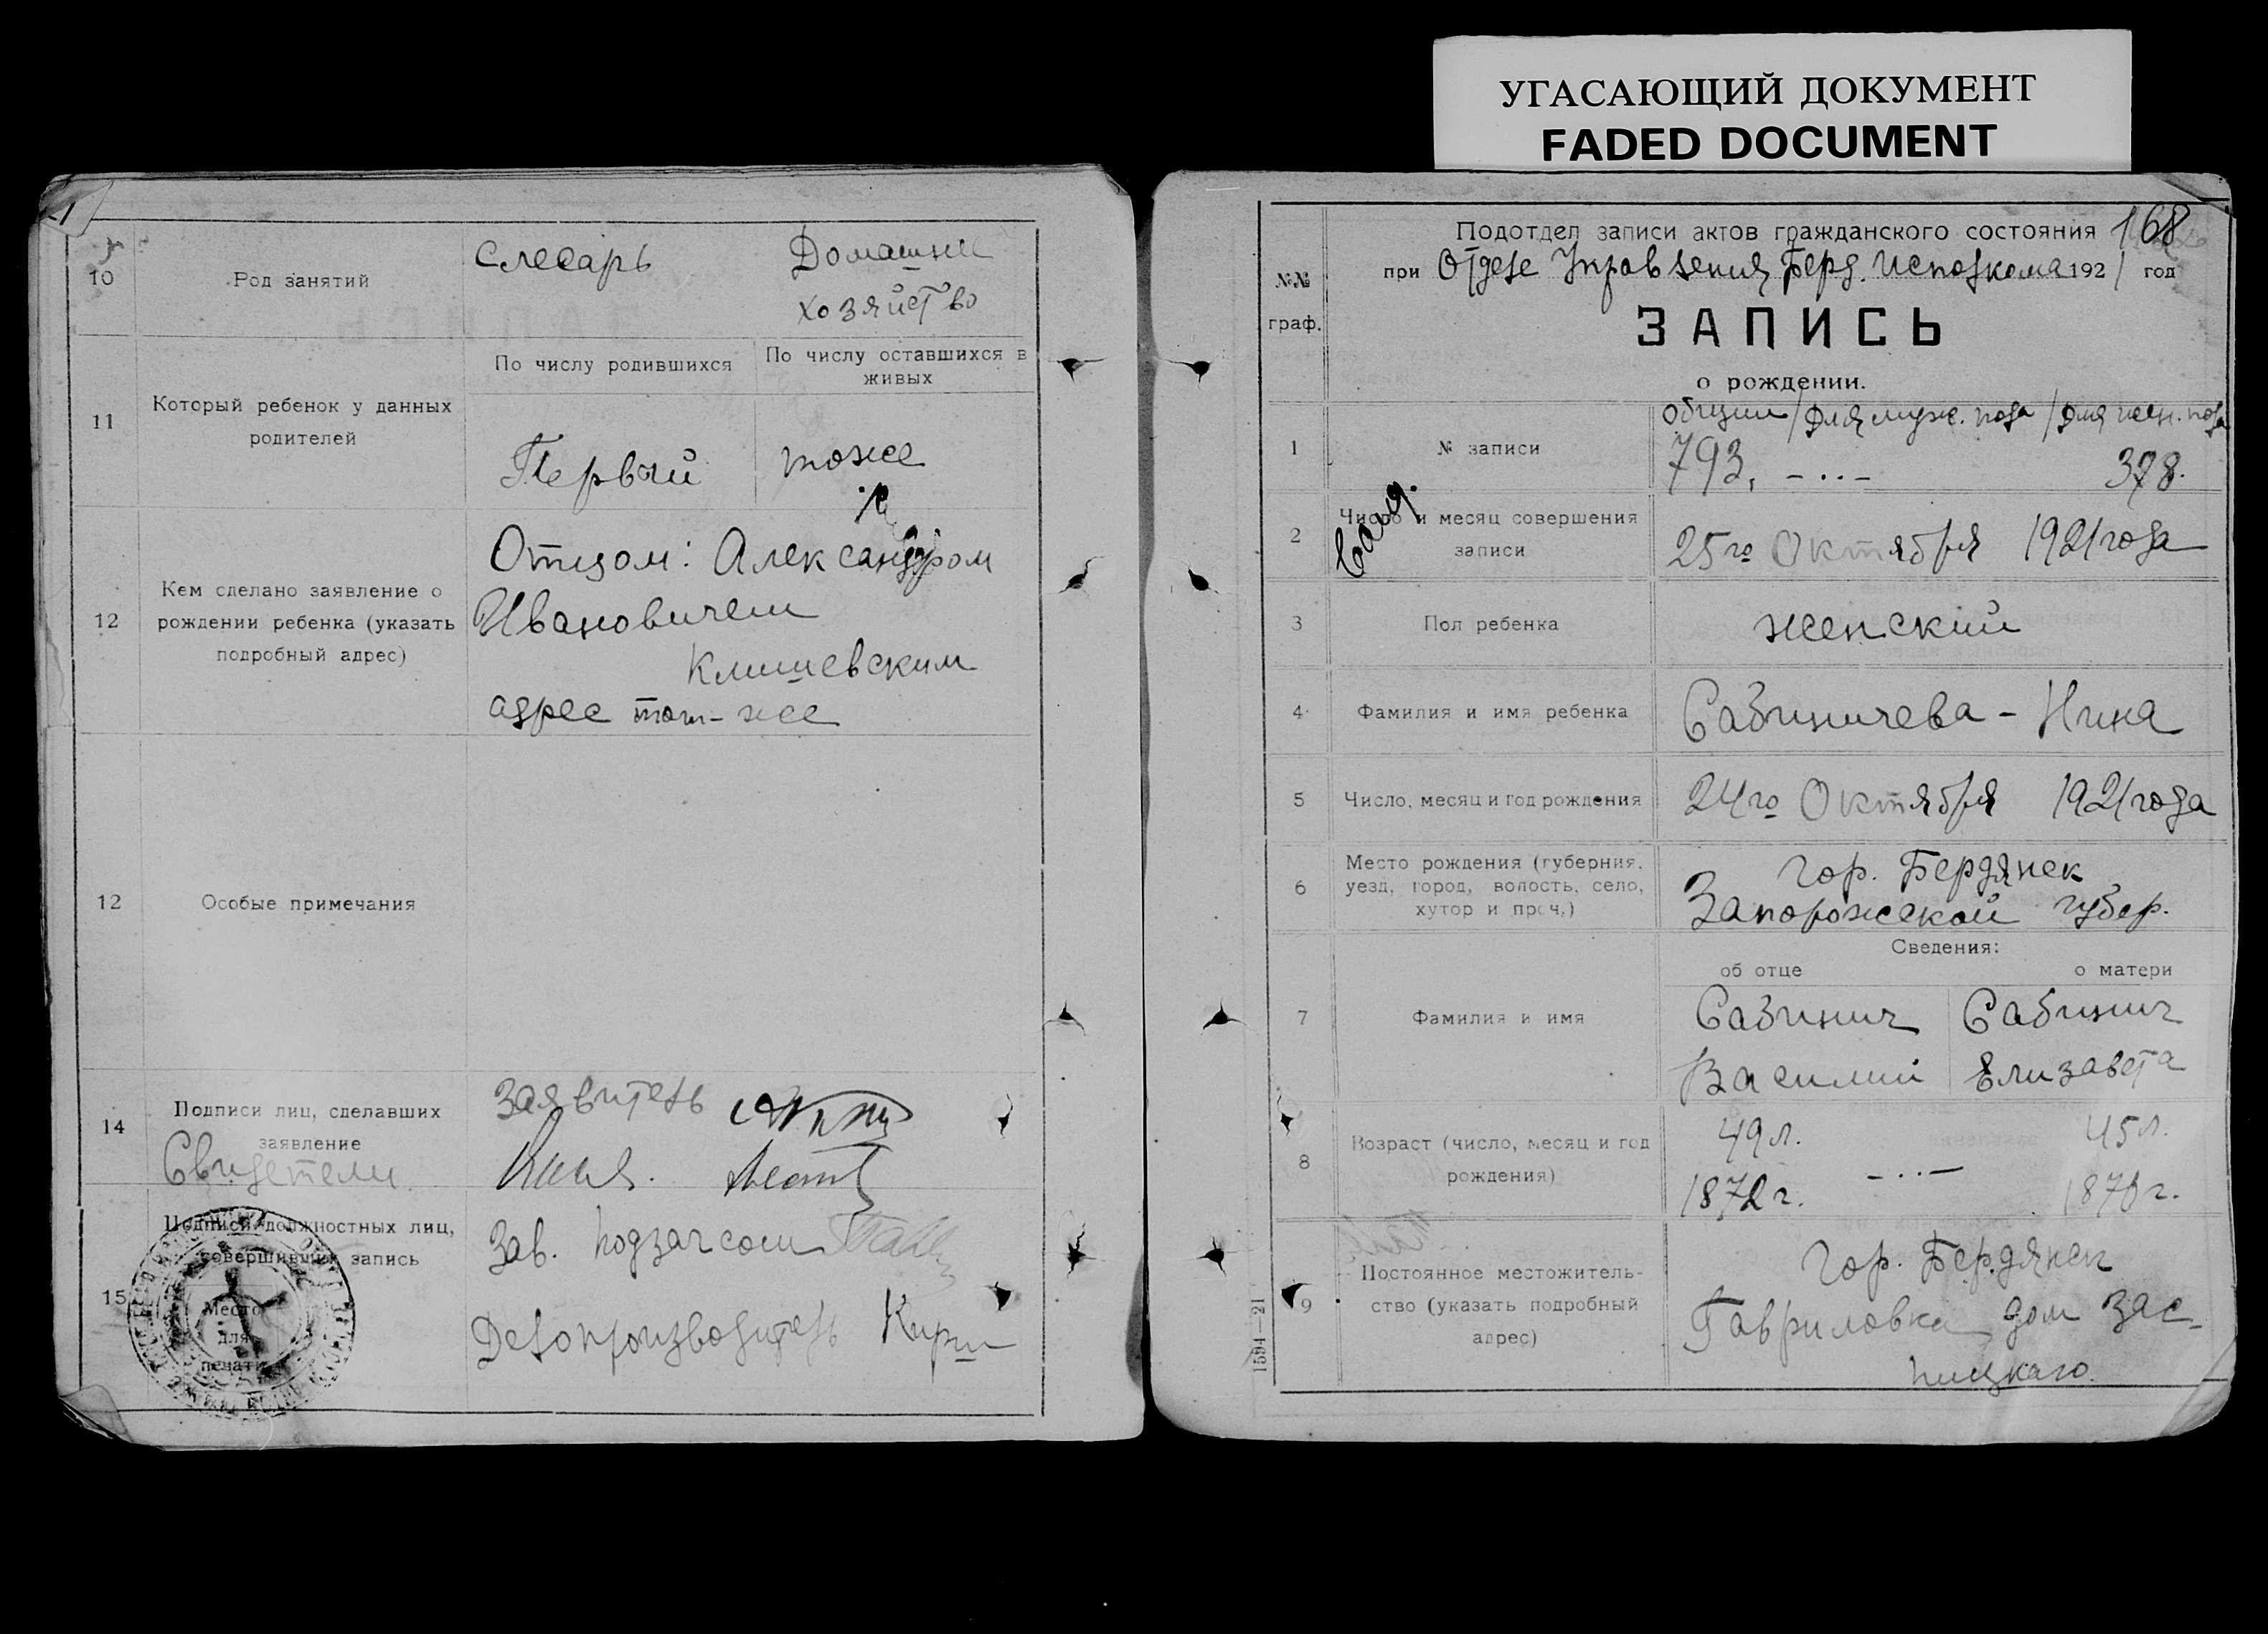 УГАСАЮЩИЙ ДОКУМЕНТ
FADED DOCUMENT
10 Род занятий Слесарь Домашнее
хозяйство
11 Который ребенок у данных родителей
По числу родившихся По числу оставшихся в живых
Первый тоже
12 Кем сделано заявление о рождении ребенка (указать подробный адрес)
Отцом: Александром
Ивановичем
Клишевским
адрес том-же
12 Особые примечания
14 Подписи лиц, сделавших заявление
Заявитель
Свидетели
15 Подписи должностных лиц, совершивших запись
Зав. подзагсом
Делопроизводитель Кирш
Место
для
печати
Подотдел записи актов гражданского состояния 168
при Отделе Управления Берд. Исполкома 1921 год
№№
граф.
ЗАПИСЬ
о рождении.
общий / для муж. пола / для жен. пола
1 № записи 793, - .. - 378.
2 Число и месяц совершения записи 25го Октября 1921 года
3 Пол ребенка женский
4 Фамилия и имя ребенка Сабиничева - Нина
5 Число, месяц и год рождения 24го Октября 1921 года
6 Место рождения (губерния, уезд, город, волость, село, хутор и проч.)
гор. Бердянск
Запорожской губер.
Сведения:
об отце о матери
7 Фамилия и имя Сабинич Сабинич
Василий Елизавета
8 Возраст (число, месяц и год рождения) 49 л. 45 л.
1872 г. - .. - 1876 г.
9 Постоянное местожительство (указать подробный адрес)
Гор. Бердянск
Гавриловка дом Зас-
пицкаго.
1594—21